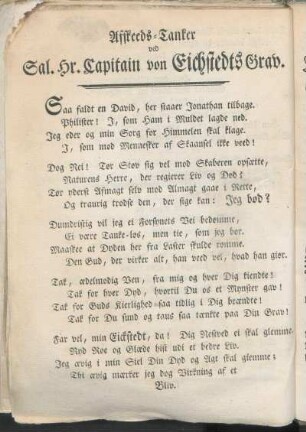 Afskeeds-Tanker
ved
Sal. Hr. Capitain von Eichstedts Grav.
Saa faldt en David, her staaer Jonathan tilbage.
Philister! I, som Ham i Muldet lagde ned.
Jeg eder og min Sorg for Himmelen skal klage.
I, som mod Mennesker af Skaansel ikke veed!
Dog Nei! Tør Støv sig vel mod Skaberen opsætte,
Naturens Herre, der regierer Liv og Død?
Tør yderst Afmagt selv mod Almagt gaae i Rette,
Og traurig trodse den, der sige kan: Jeg bød?
Dumdristig vil jeg ei Forsynets Vei bedømme,
Ei være Tanke-løs, men tie, som jeg bør.
Maaskee at Dyden her fra Laster skulde rømme.
Den Gud, der virker alt, han veed vel, hvad han giør.
Tak, ædelmodig Ven, fra mig og hver Dig kiendte!
Tak for hver Dyd, hvortil Du os et Mynster gav!
Tak for Guds Kierlighed saa tidlig i Dig brændte!
Tak for Du sund og taus saa tænkte paa Din Grav!
Far vel, min Eickstedt, da! Dig Nestved ei skal glemme.
Nyd Roe og Glæde hist udi et bedre Liv.
Jeg ævig i min Siel Din Dyd og Agt skal giemme;
Thi ævig mærker jeg dog Virkning af et
Bliv.